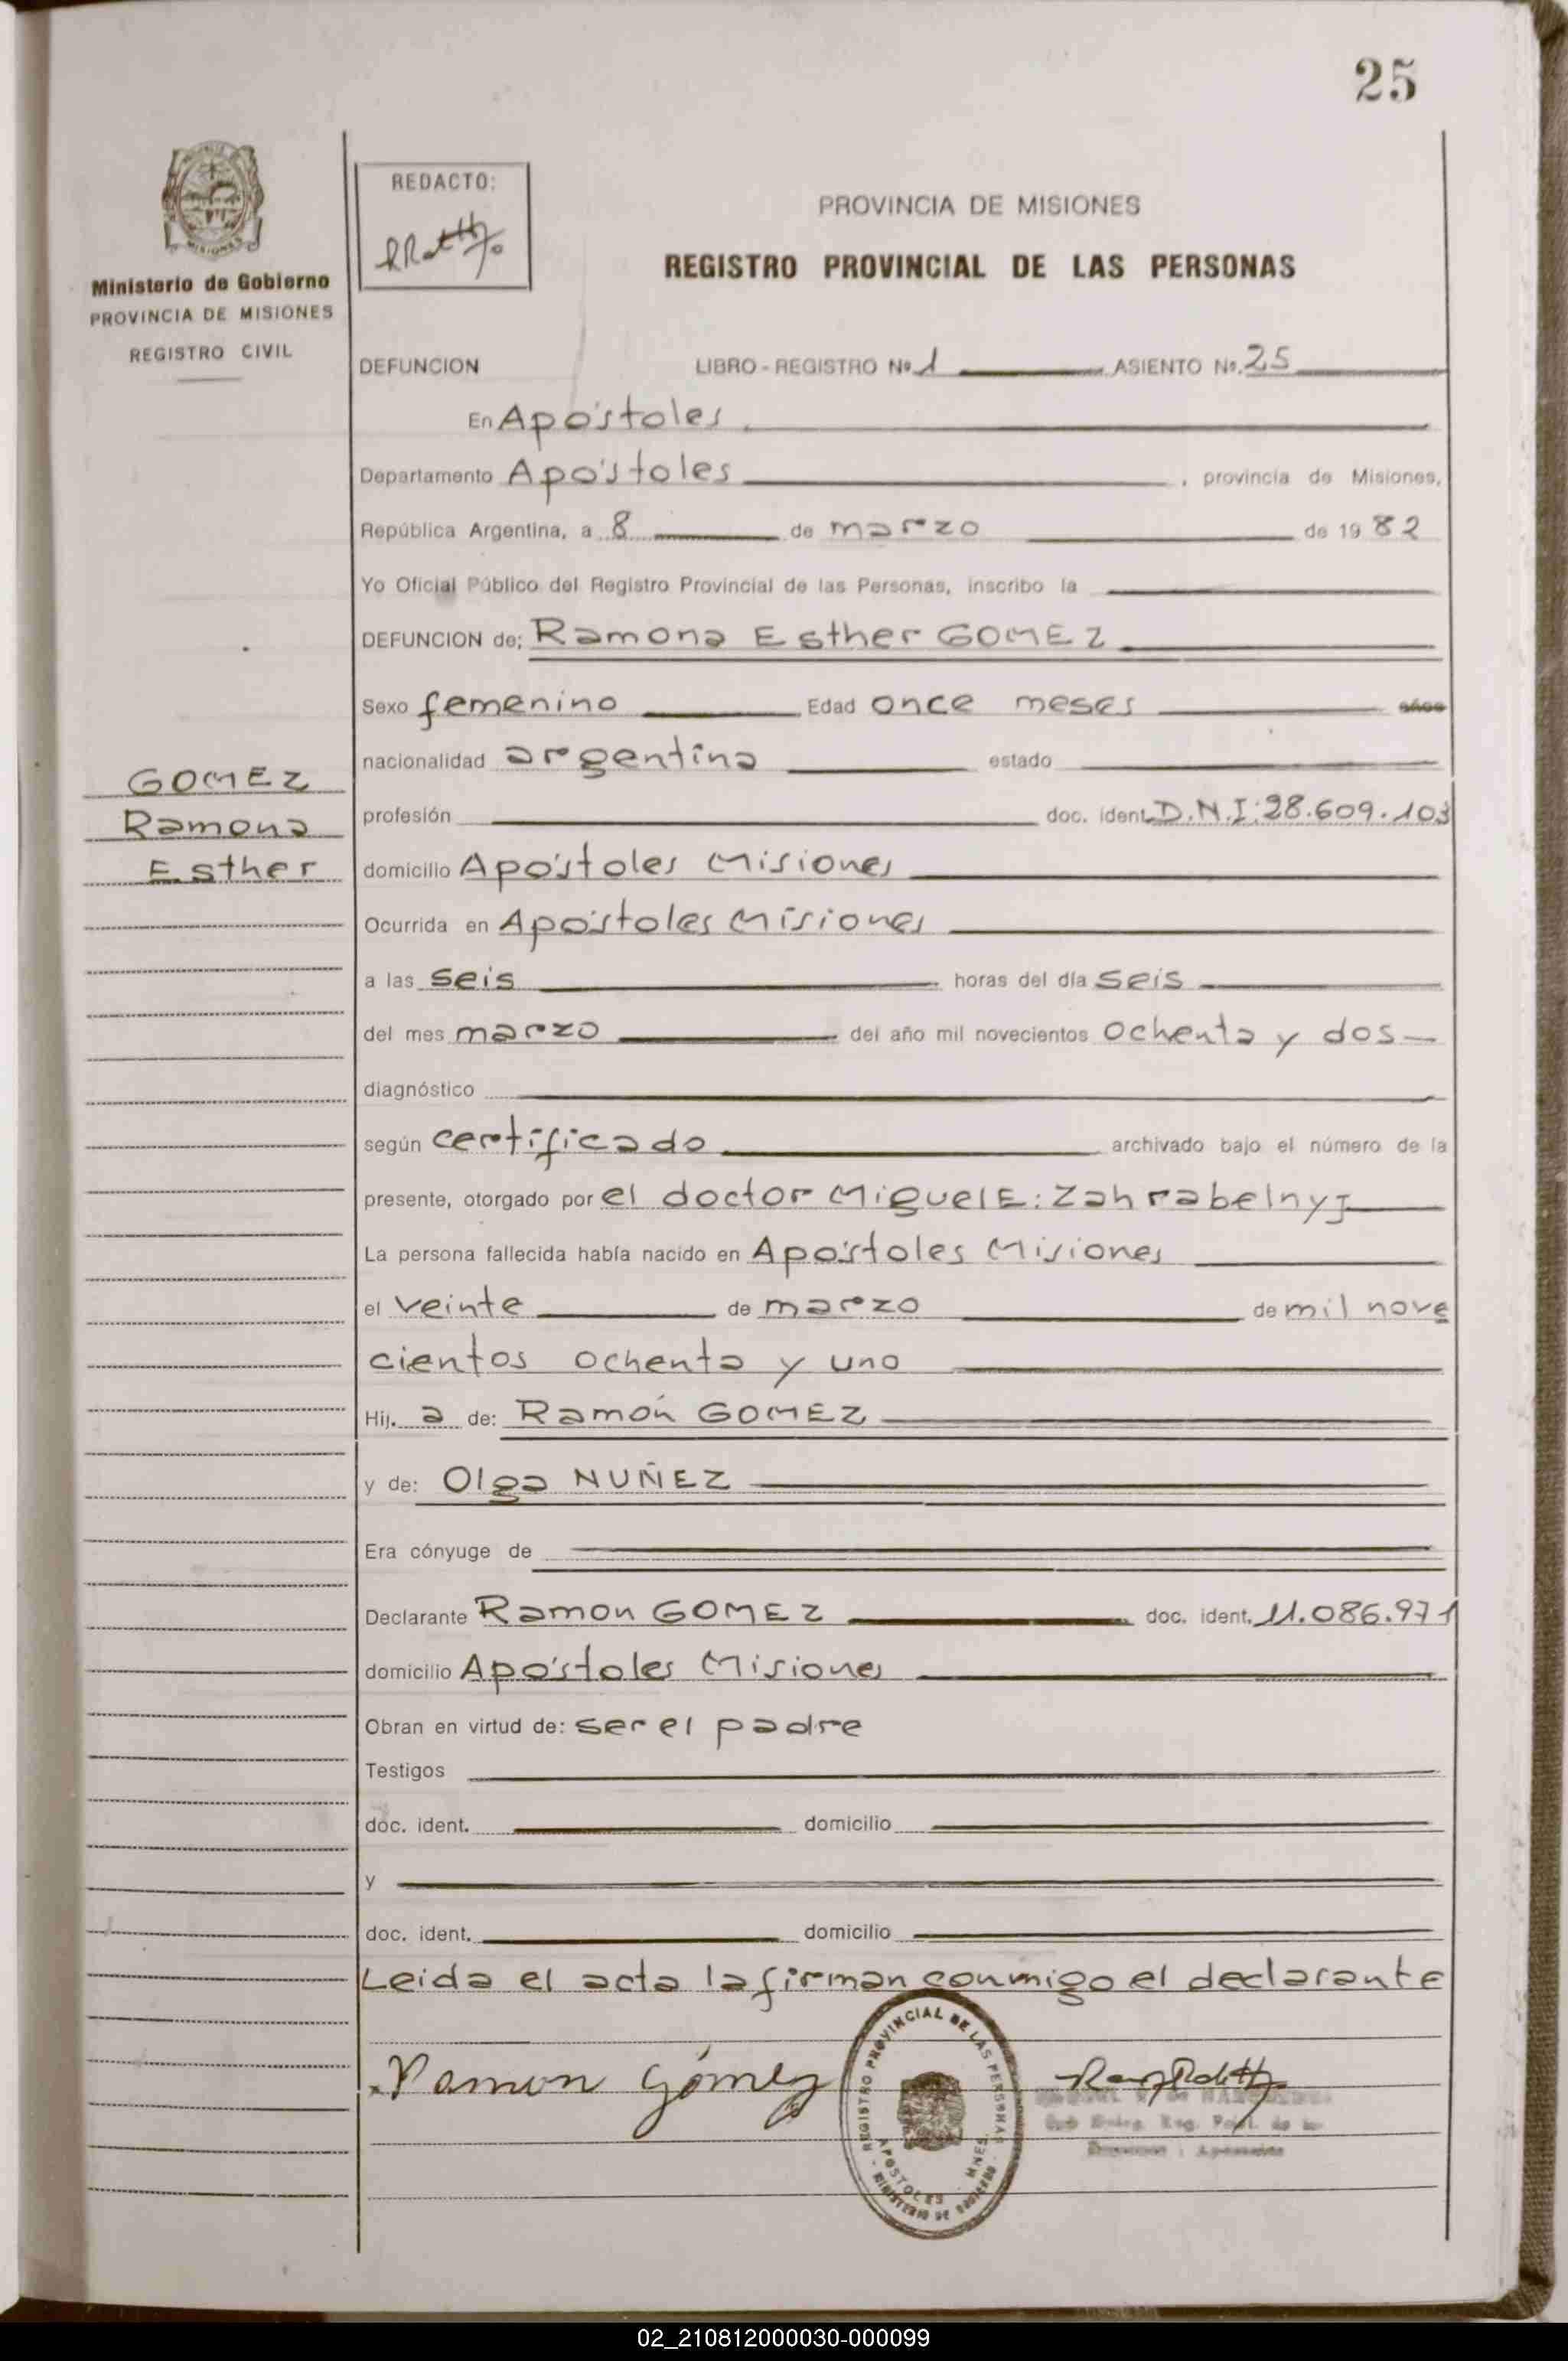 25
MISIONES
Ministerio de Gobierno
PROVINCIA DE MISIONES
REGISTRO CIVIL
GOMEZ
Ramona
Esther
REDACTO:
PROVINCIA DE MISIONES
REGISTRO PROVINCIAL DE LAS PERSONAS
DEFUNCION LIBRO - REGISTRO Nº 1 ASIENTO Nº. 25
En Apóstoles
Departamento Apóstoles , provincia de Misiones,
República Argentina, a 8 de marzo de 19 82
Yo Oficial Público del Registro Provincial de las Personas, inscribo la
DEFUNCION de; Ramona Esther GOMEZ
Sexo femenino Edad once meses años
nacionalidad argentina estado
profesión doc. ident. D.N.I:28.609.103
domicilio Apóstoles Misiones
Ocurrida en Apóstoles Misiones
a las seis horas del día seis
del mes marzo del año mil novecientos ochenta y dos
diagnóstico
según certificado archivado bajo el número de la
presente, otorgado por el doctor Miguel E: Zahrabelnyj
La persona fallecida había nacido en Apóstoles Misiones
el veinte de marzo de mil nove
cientos ochenta y uno
Hij. a de: Ramón GOMEZ
y de: Olga NUÑEZ
Era cónyuge de
Declarante Ramon GOMEZ doc. ident. 11.086.971
domicilio Apóstoles Misiones
Obran en virtud de: ser el padre
Testigos
doc. ident. domicilio
y
doc. ident. domicilio
Leida el acta la firman conmigo el declarante
Ramon Gómez
REGISTRO PROVINCIAL DE LAS PERSONAS
APOSTOLES MNES.
MINISTERIO DE GOBIERNO
02_210812000030-000099